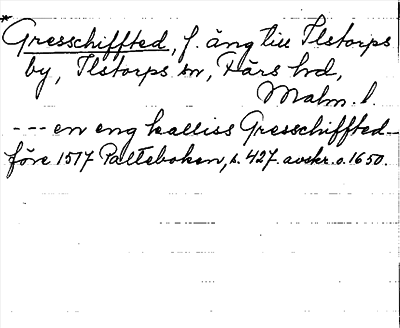 *Gresschiffted, f. äng till Ilstorps
by, Ilstorps sn, Färs hd,
Malm. l.
--- en eng kalliss Gresschiffted -
före 1517 Palteboken, s. 427. avskr. o. 1650.